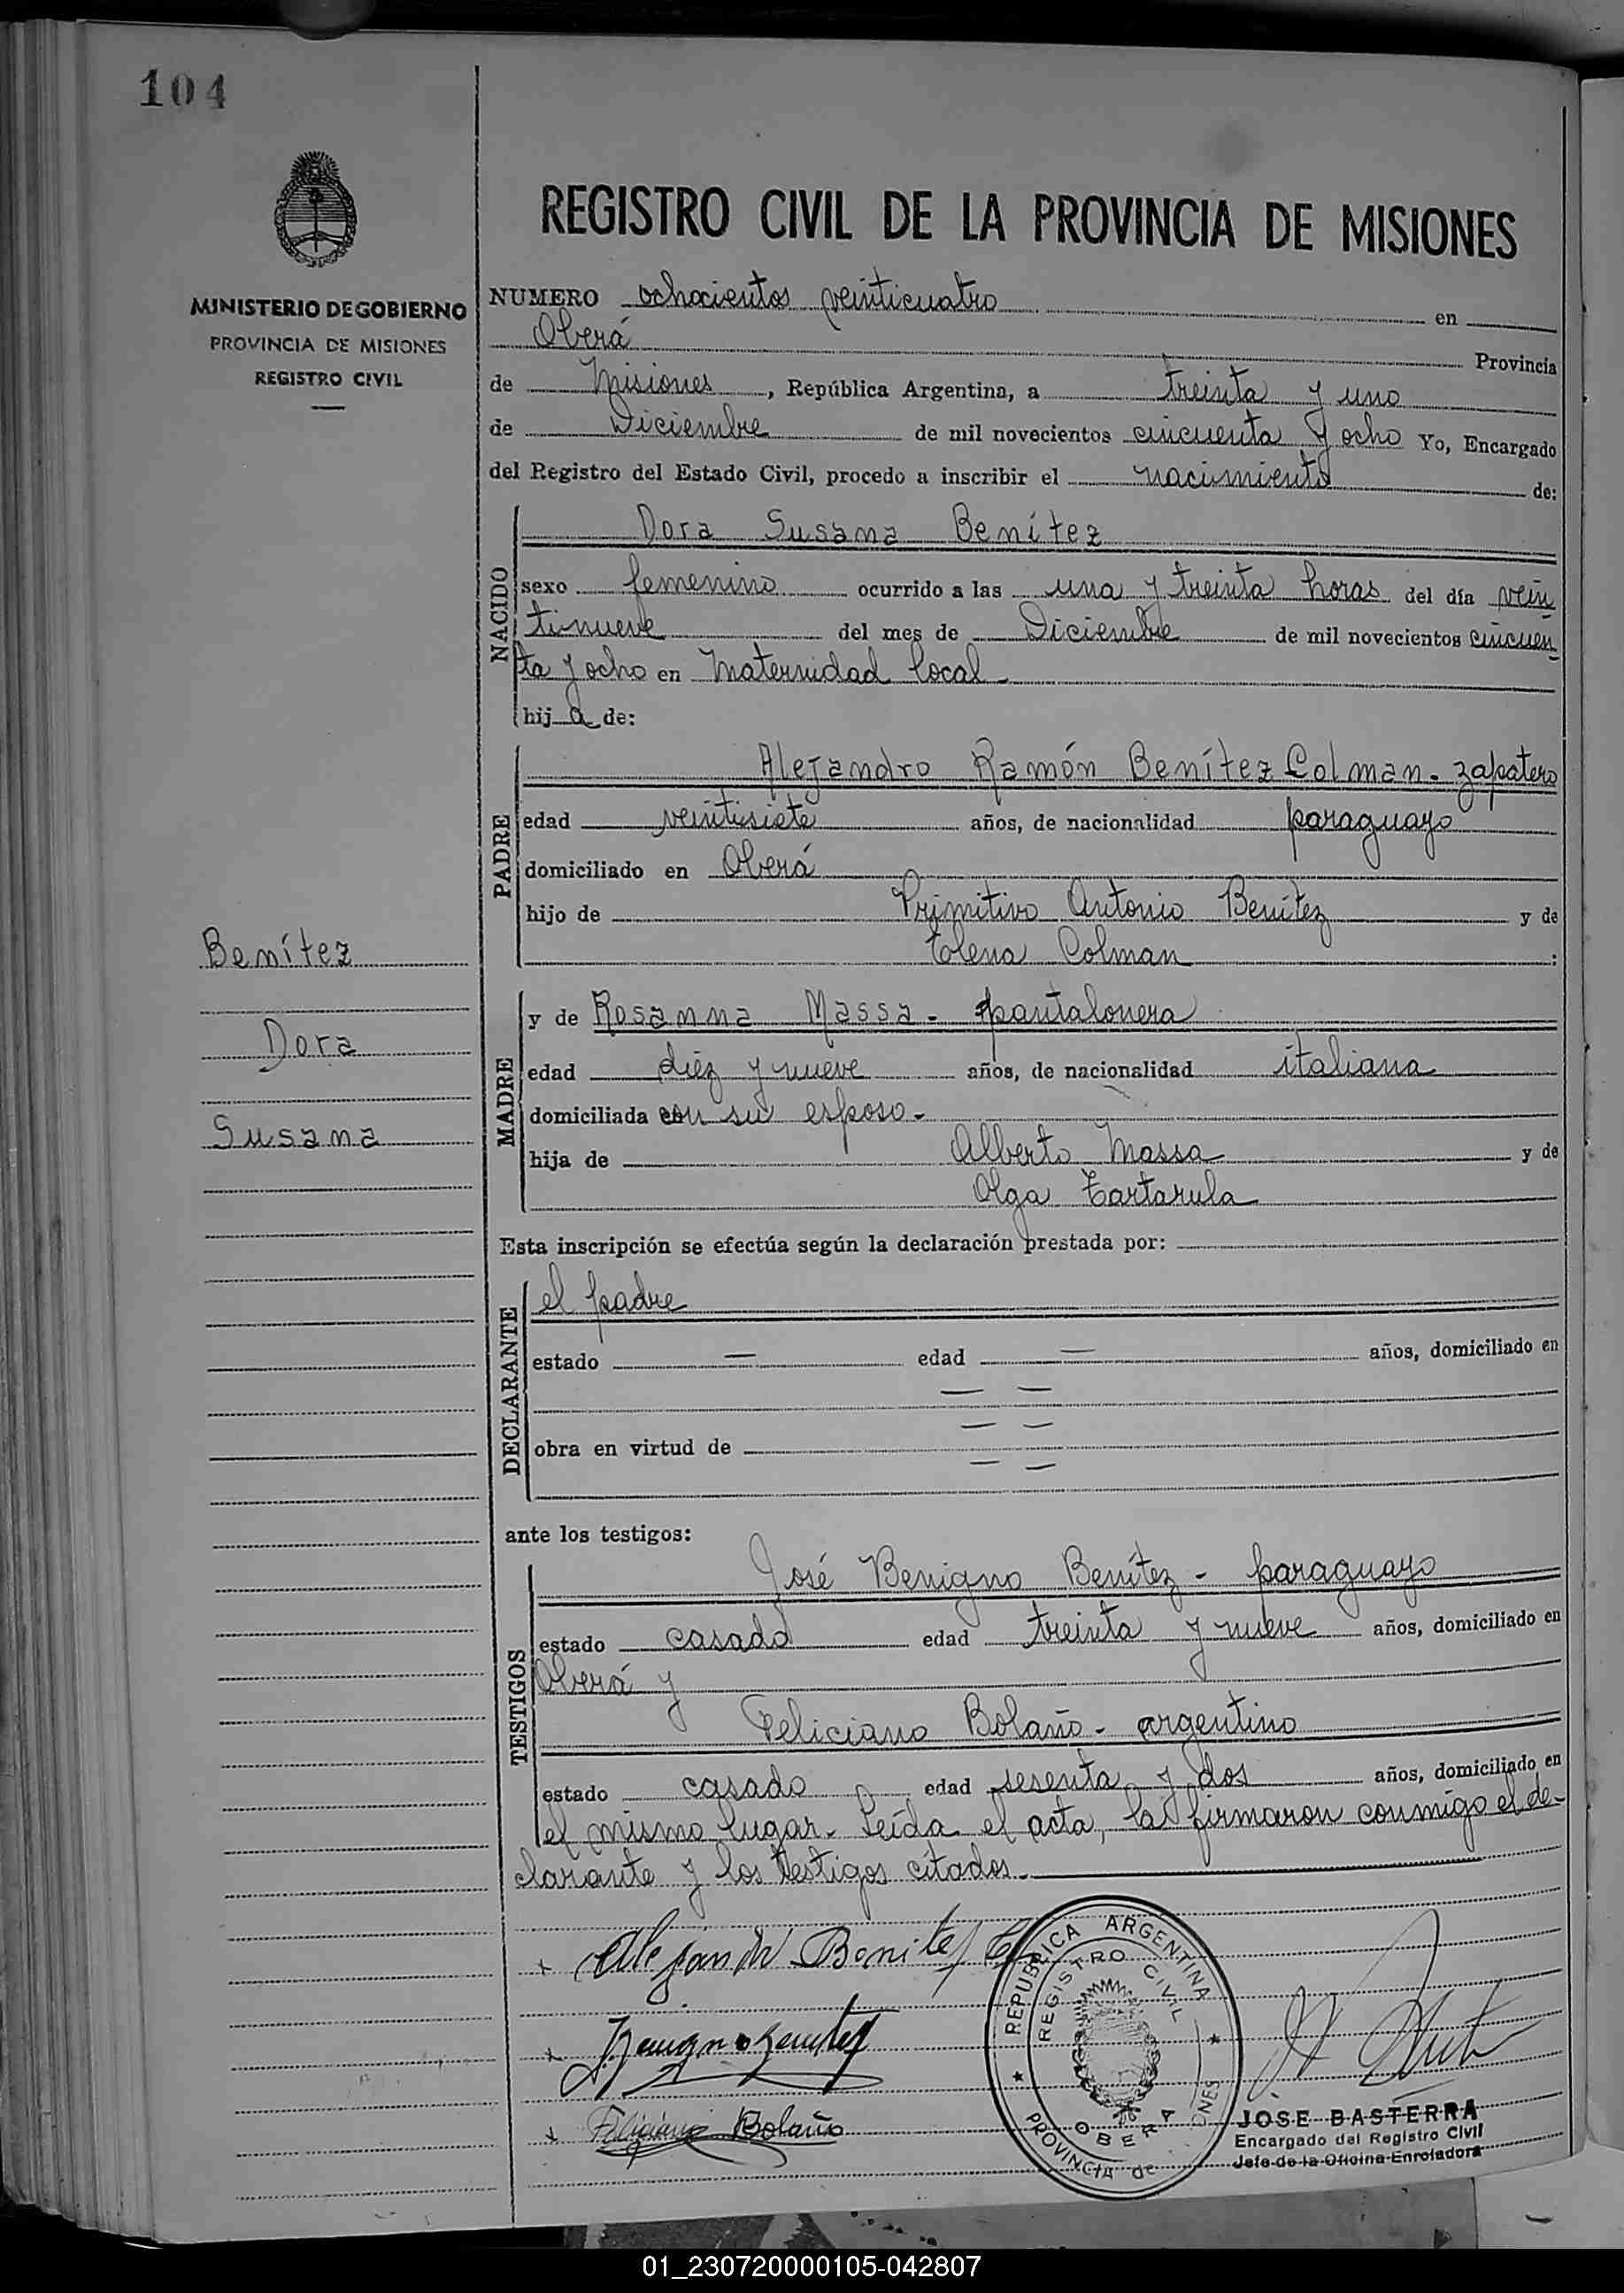 104
MINISTERIO DE GOBIERNO
PROVINCIA DE MISIONES
REGISTRO CIVIL
REGISTRO CIVIL DE LA PROVINCIA DE MISIONES
NUMERO ochocientos veinticuatro en
Oberá Provincia
de Misiones, República Argentina, a treinta y uno
de Diciembre de mil novecientos cincuenta y ocho Yo, Encargado
del Registro del Estado Civil, procedo a inscribir el nacimiento de:
NACIDO
Dora Susana Benítez
sexo femenino ocurrido a las una y treinta horas del día vein
tinueve del mes de Diciembre de mil novecientos cincuen
ta y ocho en Maternidad local
hija de:
PADRE
Alejandro Ramón Benítez Colman - zapatero
edad veintisiete años, de nacionalidad paraguayo
domiciliado en Oberá
hijo de Primitivo Antonio Benítez y de
Elena Colman :
Benítez
Dora
Susana
MADRE
y de Rosanna Massa - pantalonera
edad diéz y nueve años, de nacionalidad italiana
domiciliada con su esposo -
hija de Alberto Massa y de
Olga Tartarula
Esta inscripción se efectúa según la declaración prestada por:
DECLARANTE
el padre
estado — edad — años, domiciliado en
— —
— —
obra en virtud de
— —
ante los testigos:
TESTIGOS
José Benigno Benítez - paraguayo
estado casado edad treinta y nueve años, domiciliado en
Oberá y
Feliciano Bolaño - argentino
estado casado edad sesenta y dos años, domiciliado en
el mismo lugar. Leída el acta, la firmaron conmigo el de-
clarante y los testigos citados.
Alejandro Benitez C
Benigno Benitez
Feliciano Bolaño
REPUBLICA ARGENTINA
REGISTRO CIVIL
OBERA
PROVINCIA de
JOSE BASTERRA
Encargado del Registro Civil
Jefe de la Oficina Enroladora
01_230720000105-042807